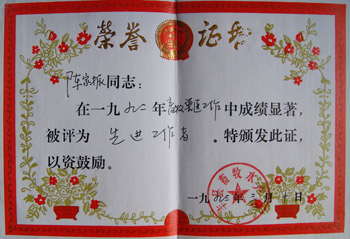 荣誉证书
陈家振同志：
在一九九二年畜牧兽医工作中成绩显著，
被评为先进工作者。特颁发此证，
以资鼓励。
畜牧水
一九九三年三月十日